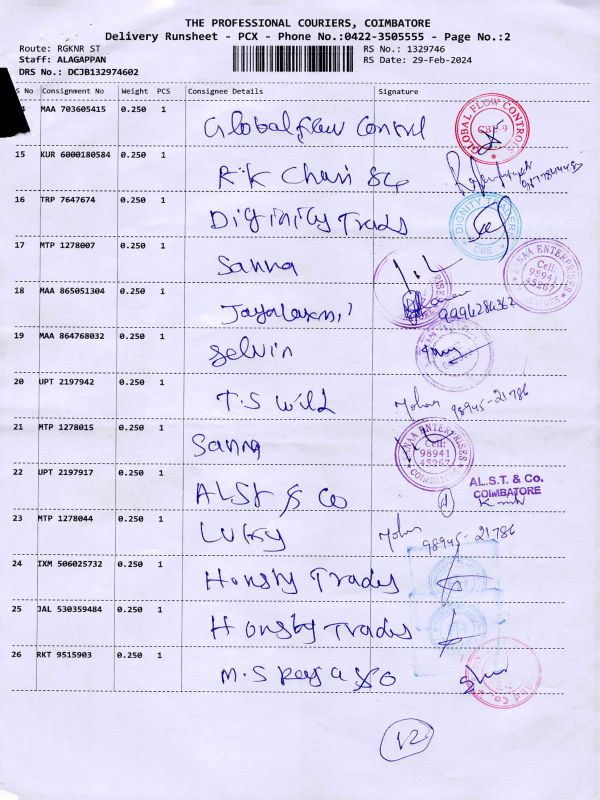 THE PROFESSIONAL COURIERS, COIMBATORE
Delivery Runsheet - PCX - Phone No.:0422-3505555 - Page No.:2
Route: RGKNR ST RS No.: 1329746
Staff: ALAGAPPAN RS Date: 29-Feb-2024
DRS No.: DCJB132974602
S No Consignment No Weight PCS Consignee Details Signature
4 MAA 703605415 0.250 1 Global flow Control GLOBAL FLOW CONTROLS CBE-9
15 KUR 6000180584 0.250 1 R.K Chari
16 TRP 7647674 0.250 1 Diginity Trads DIGNITY CBE
17 MTP 1278007 0.250 1 Sanna SANAA ENTERPRISES Cell: 98941 45267 COIMBATORE
18 MAA 865051304 0.250 1 Jayalaxmi
19 MAA 864768032 0.250 1 Selvin
20 UPT 2197942 0.250 1 T.S Wild Mohan 98945-21786
21 MTP 1278015 0.250 1 Sanna SANAA ENTERPRISES Cell: 98941 45267 COIMBATORE
22 UPT 2197917 0.250 1 ALST & Co AL.S.T. & Co. COIMBATORE
23 MTP 1278044 0.250 1 Lucky Mohan 98945-21786
24 IXM 506025732 0.250 1 Honsby Trades
25 JAL 530359484 0.250 1 Honsby Trades
26 RKT 9515903 0.250 1 M.S
12